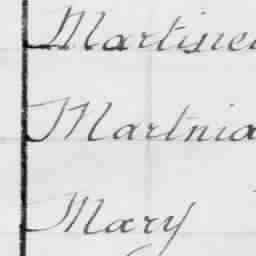 Martinei
Martnia
Mary